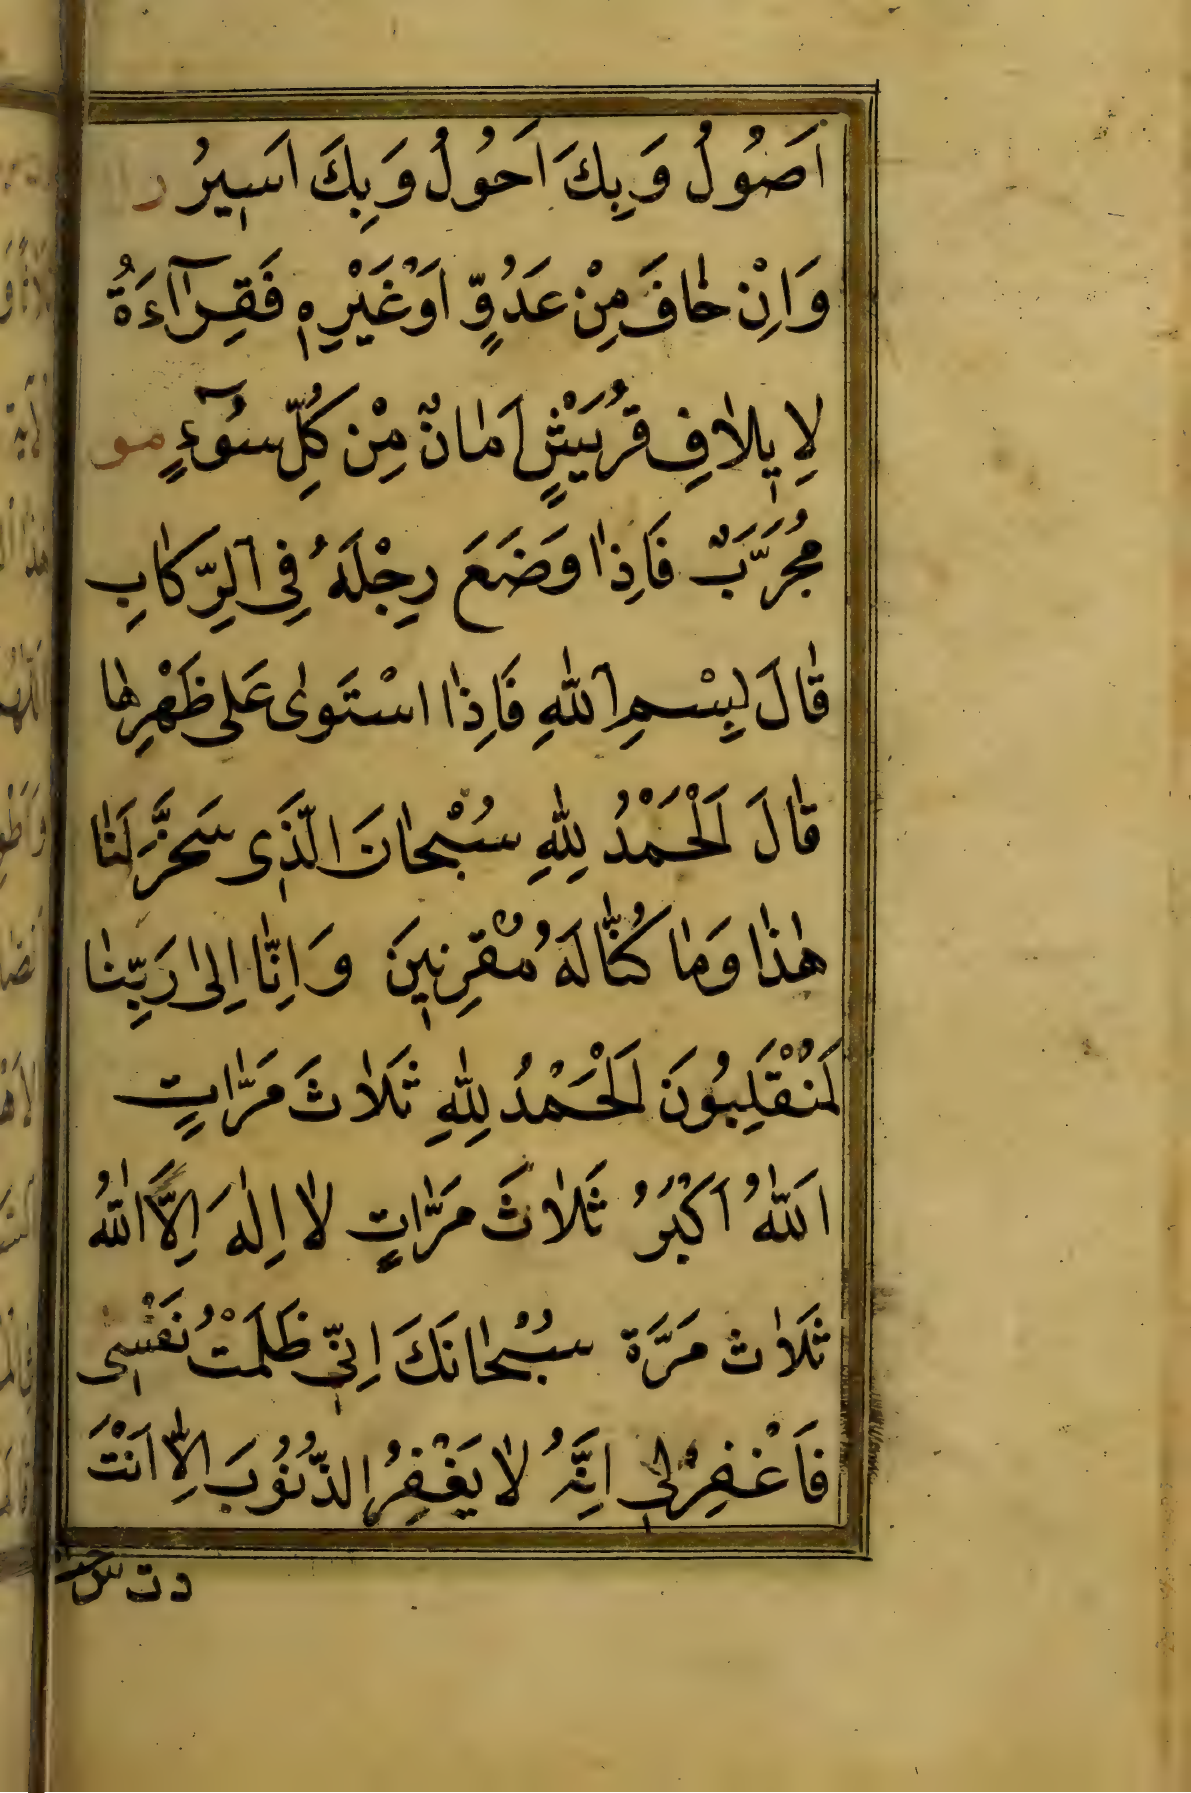 اَصُولُ وَبِكَ اَحُولُ وَبِكَ اَسِيرُ ر
وَاِنْ خٰافَ مِنْ عَدُوٍّ اَوْغَيْرِهِ فَقِرٰآءَةُ
لِاِيلٰافِ قُرَيْشٍ اَمٰانٌ مِنْ كُلِّ سُوٓءٍ مو
مُجَرَّبٌ فَاِذٰا وَضَعَ رِجْلَهُ فِى الرِّكٰابِ
قٰالَ بِسْمِ اللّٰهِ فَاِذٰا اسْتَوٰى عَلٰى ظَهْرِهٰا
قٰالَ اَلْحَمْدُ لِلّٰهِ سُبْحٰانَ الَّذِى سَخَّرَ لَنٰا
هٰذٰا وَمٰا كُنّٰا لَهُ مُقْرِنِينَ وَاِنّٰا اِلٰى رَبِّنٰا
لَمُنْقَلِبُونَ اَلْحَمْدُ لِلّٰهِ ثَلٰاثَ مَرّٰاتٍ
اَللّٰهُ اَكْبَرُ ثَلٰاثَ مَرّٰاتٍ لٰا اِلٰهَ اِلَّا اللّٰهُ
ثَلٰاث مَرَّة سُبْحٰانَكَ اِنِّى ظَلَمْتُ نَفْسِى
فَاغْفِرْلِى اِنَّهُ لٰا يَغْفِرُ الذُّنُوبَ اِلّٰا اَنْتَ
د ت س